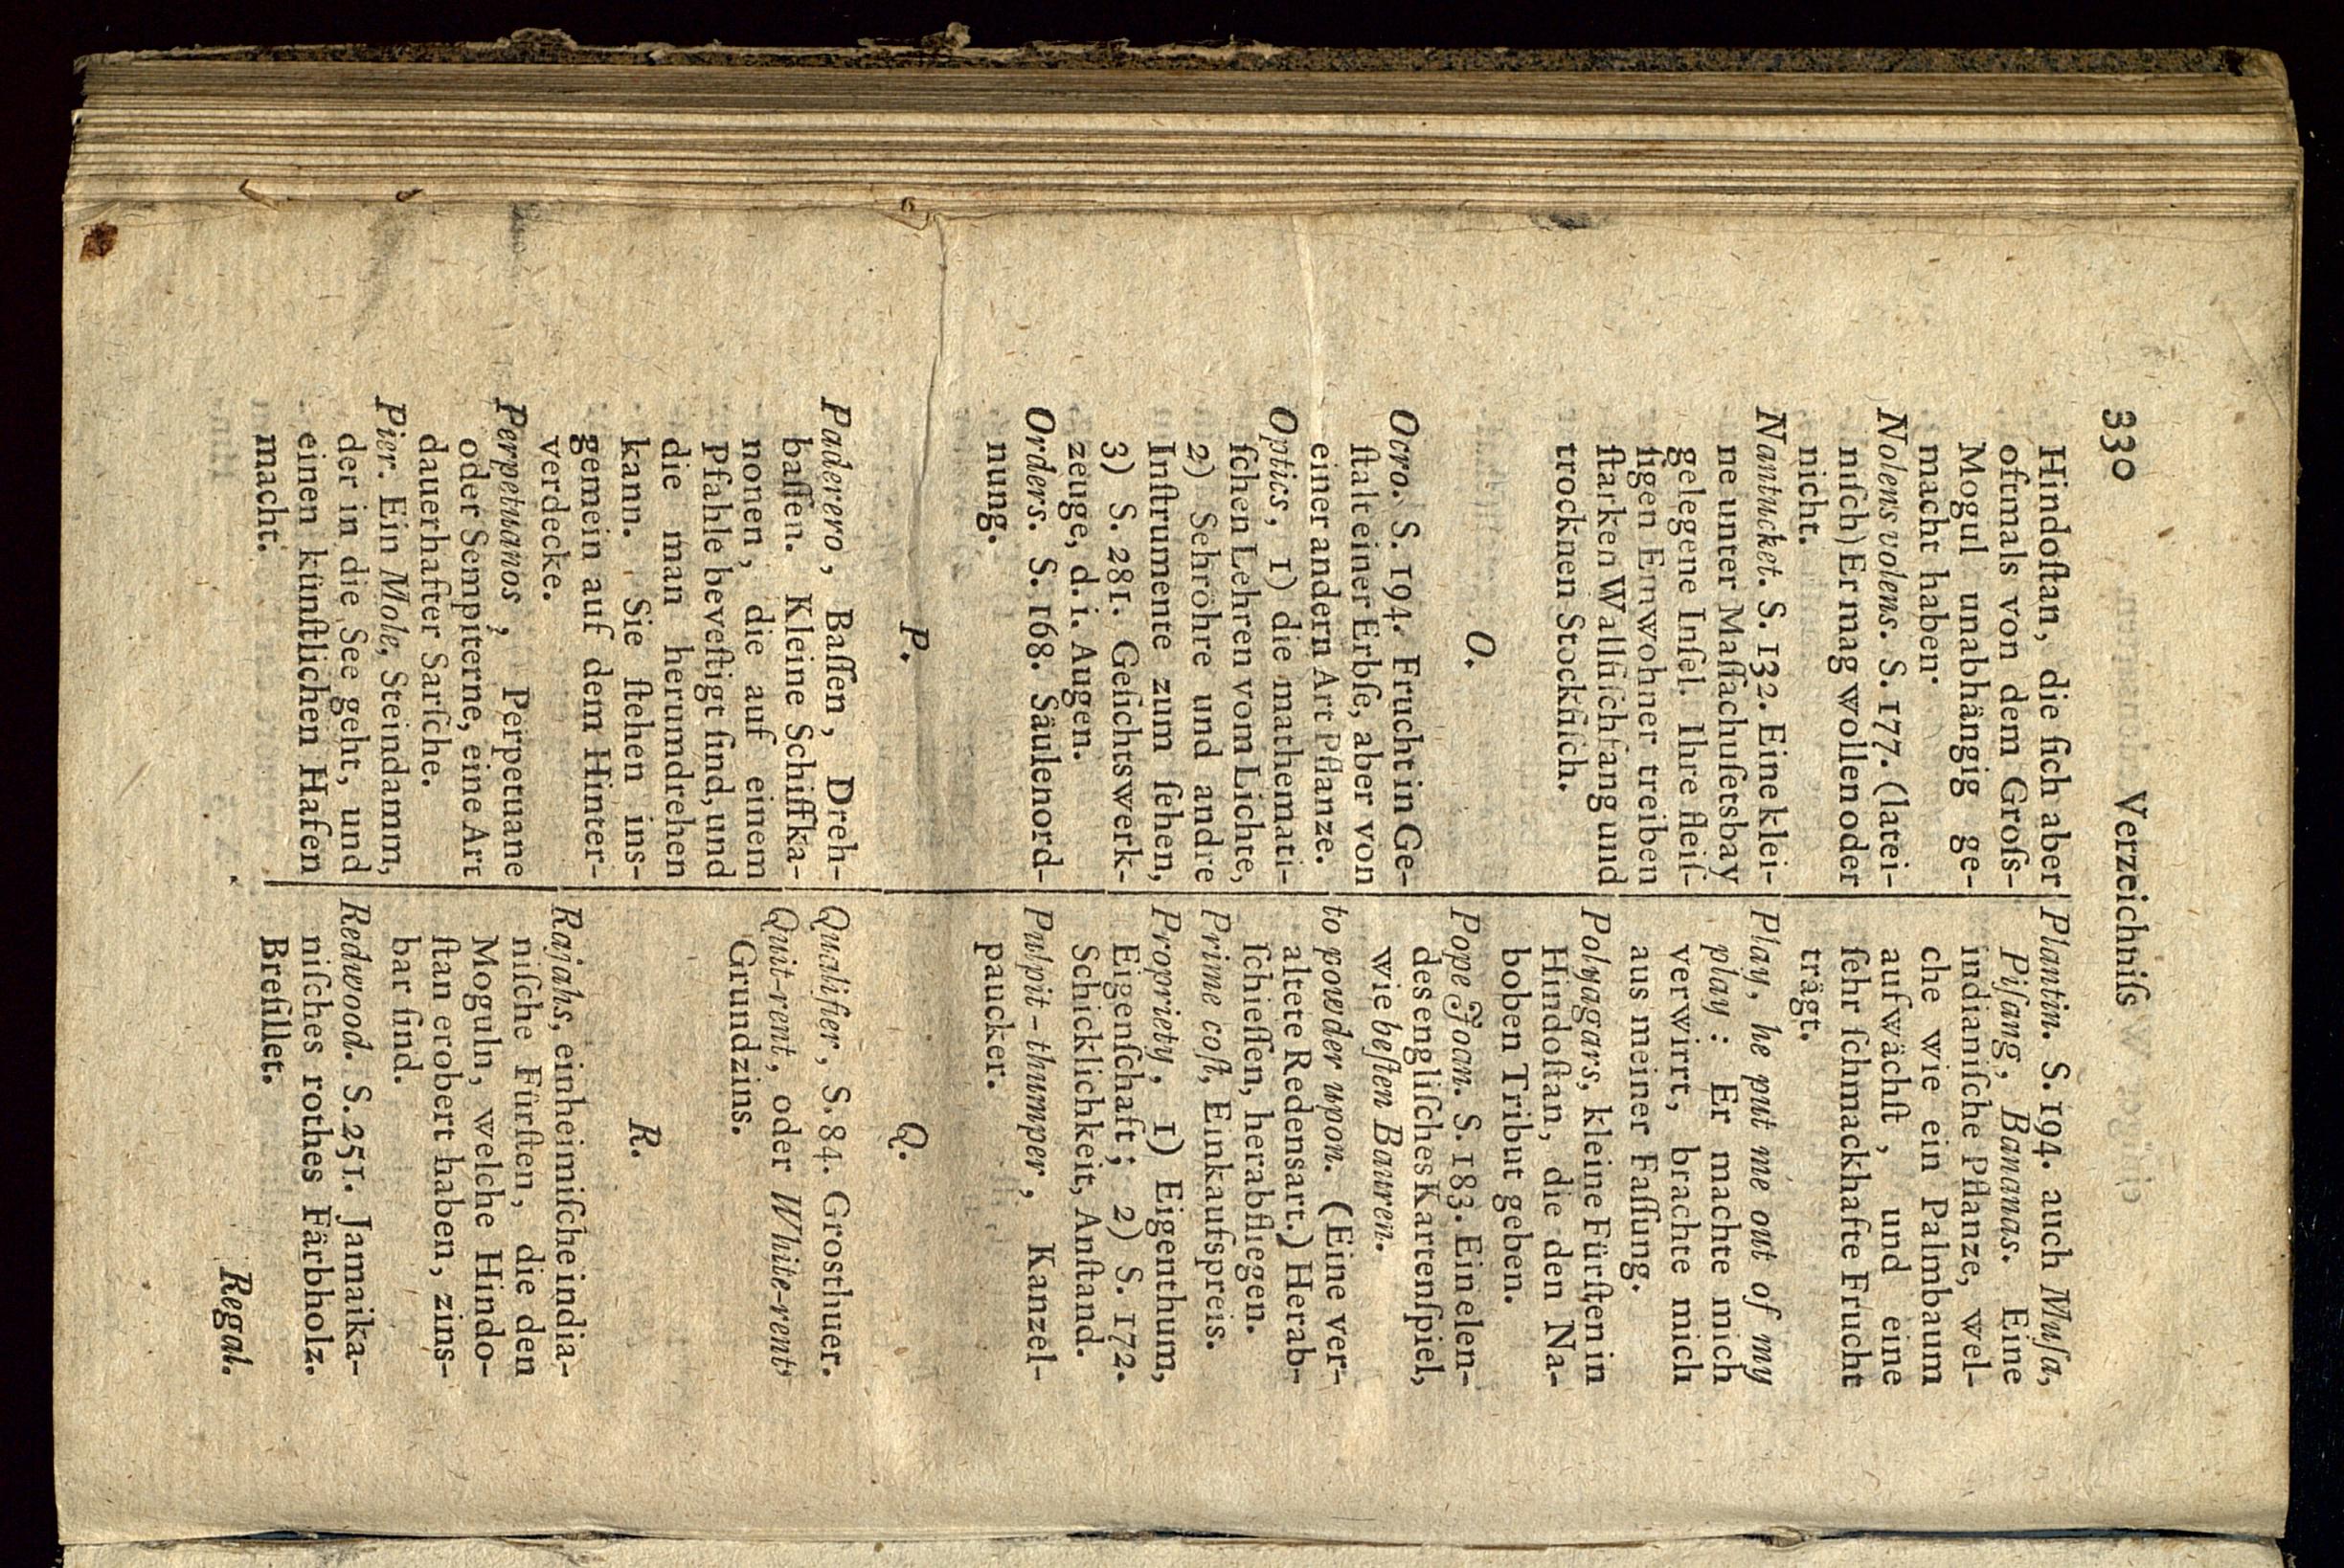 330 Verzeichniſs
Hindoſtan, die ſich aber
oftmals von dem Groſs-
Mogul unabhängig ge-
macht haben.
Nolens volens. S. 177. (latei-
niſch) Er mag wollen oder
nicht.
Nantucket. S. 132. Eine klei-
ne unter Maſſachuſetsbay
gelegene Inſel. Ihre fleiſ-
ſigen Einwohner treiben
ſtarken Wallfiſchfang und
trocknen Stockfiſch.
O.
Ocro. S. 194. Frucht in Ge-
ſtalt einer Erbſe, aber von
einer andern Art Pflanze.
Optics, 1) die mathemati-
ſchen Lehren vom Lichte,
2) Sehröhre und andre
Inſtrumente zum ſehen,
3) S. 281. Geſichtswerk-
zeuge, d. i. Augen.
Orders. S. 168. Säulenord-
nung.
P.
Paderero, Baſſen, Dreh-
baſſen. Kleine Schiffka-
nonen, die auf einem
Pfahle beveſtigt ſind, und
die man herumdrehen
kann. Sie ſtehen ins-
gemein auf dem Hinter-
verdecke.
Perpetuanos, Perpetuane
oder Sempiterne, eine Art
dauerhafter Sarſche.
Pier. Ein Mole, Steindamm,
der in die See geht, und
einen künſtlichen Hafen
macht.
Plantin. S. 194. auch Muſa,
Piſang, Bananas. Eine
indianiſche Pflanze, wel-
che wie ein Palmbaum
aufwächſt, und eine
ſehr ſchmackhafte Frucht
trägt.
Play, he put me out of my
play: Er machte mich
verwirrt, brachte mich
aus meiner Faſſung.
Polyagars, kleine Fürſten in
Hindoſtan, die den Na-
boben Tribut geben.
Pope Joan. S. 183. Ein elen-
des engliſches Kartenſpiel,
wie beſten Bauren.
to powder upon. (Eine ver-
altete Redensart.) Herab-
ſchieſſen, herabfliegen.
Prime coſt, Einkaufspreis.
Propriety, 1) Eigenthum,
Eigenſchaft; 2) S. 172.
Schicklichkeit, Anſtand.
Pulpit-thumper, Kanzel-
paucker.
Q.
Qualifier, S. 84. Grosthuer.
Quit-rent, oder White-rent,
Grundzins.
R.
Rajahs, einheimiſche india-
niſche Fürſten, die den
Moguln, welche Hindo-
ſtan erobert haben, zins-
bar ſind.
Redwood. S. 251. Jamaika-
niſches rothes Färbholz.
Breſillet.
Regal.